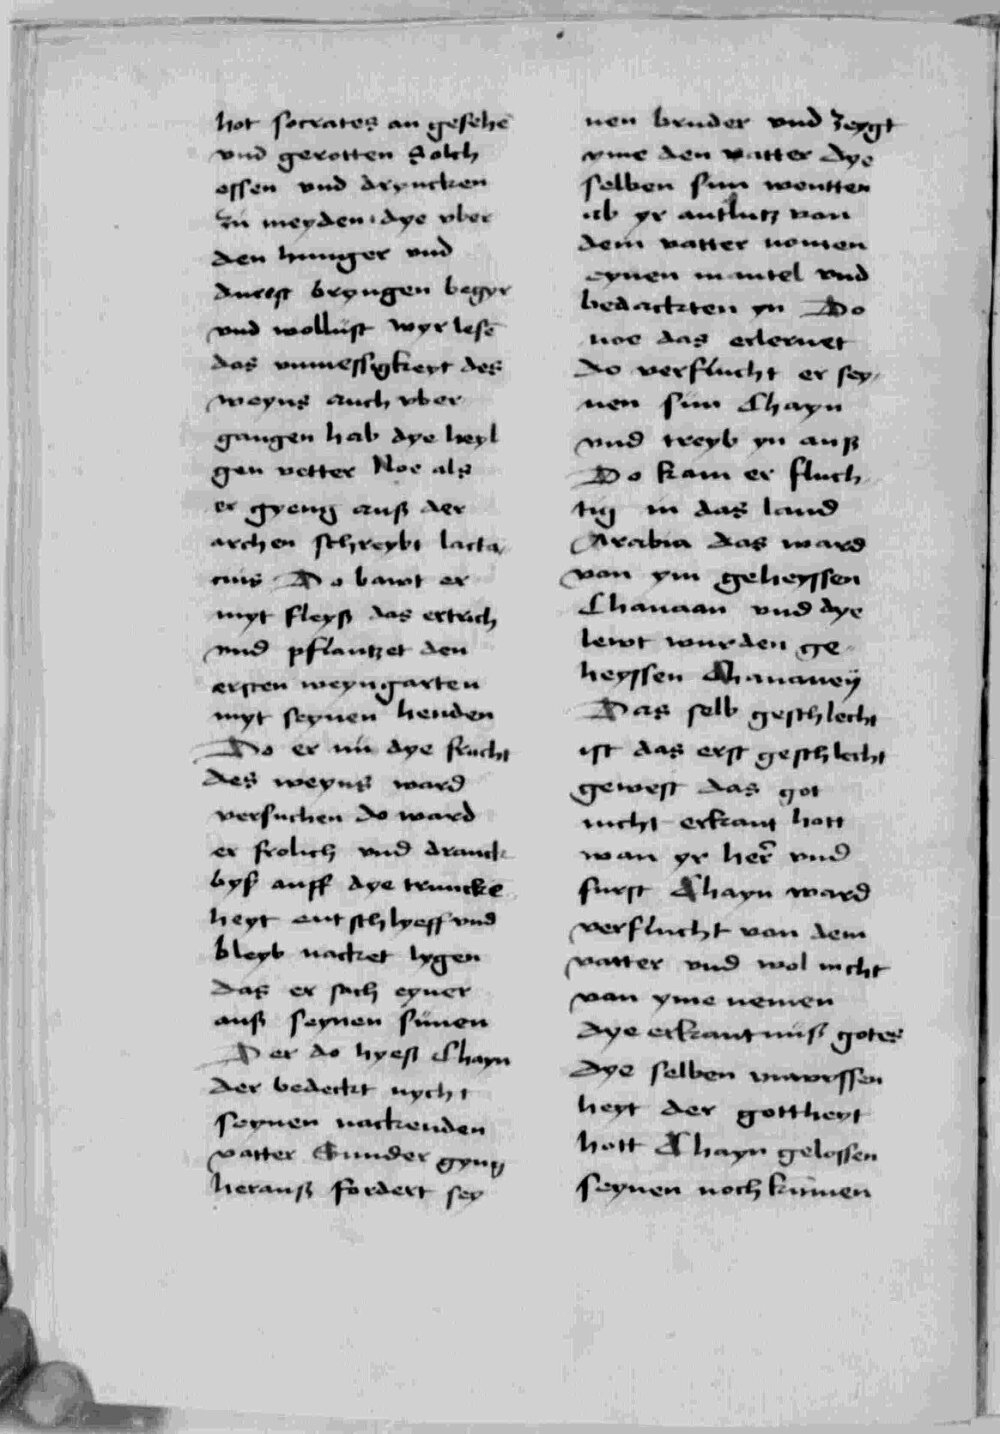 hot socrates an gesehē
vnd gerotten Solch
essen vnd dryncken
zu meyden dye vber
den hunger vnd
durst bryngen begyr
vnd wollüst wyr lesē
das vnmessigkeyt des
weyns auch vber
gangen hab dye heyl
gen vetter Noe als
er gyeng auß der
archen schreybt lacta
cius Do bawt er
myt fleyß das ertrich
vnd pflantzet den
ersten weyngarten
myt seynen henden
Do er nü dye frucht
des weyns ward
versuchen do ward
er frolich vnd dranck
byß auff dye trunckē
heyt entschlyeff vnd
bleyb nacket lygen
das er sach eyner
auß seynen sünen
Der do hyeß Chayn
der bedeckt nycht
seynen nackenden
vatter Sunder gyng
herauß fordert sey
nen bruder vnd zeygt
yme den vatter dye
selben sun wentten
ab yr antlutz van
dem vatter nomen
eynen mantel vnd
bedackten yn Do
noe das erlernet
do verflucht er sey
nen sün Chayn
vnd treyb yn auß
Do kam er fluch
tig in das land
Arabia das ward
van ym geheyssen
Chanaan vnd dye
lewt wurden ge
heyssen Chananey
Das selb geschlecht
ist das erst geschlecht
gewest das got
nicht erkant hott
wan yr her̄ vnd
furst Chayn ward
verflucht van dem
vatter vnd wol nicht
van yme nemen
dye erkantnuß gotes
dye selben vnwyssen
heyt der gottheyt
hott Chayn gelossen
seynen nochkumen